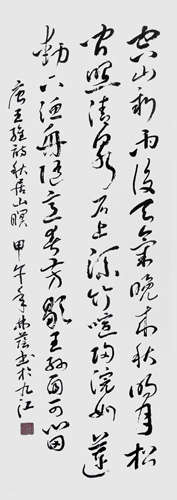 空山新雨後天氣晚來秋明月松
間照清泉石上流竹喧歸浣女蓮
動下漁舟隨意春芳歇王孫自可留
唐王維詩秋居山暝 甲午年書於九江